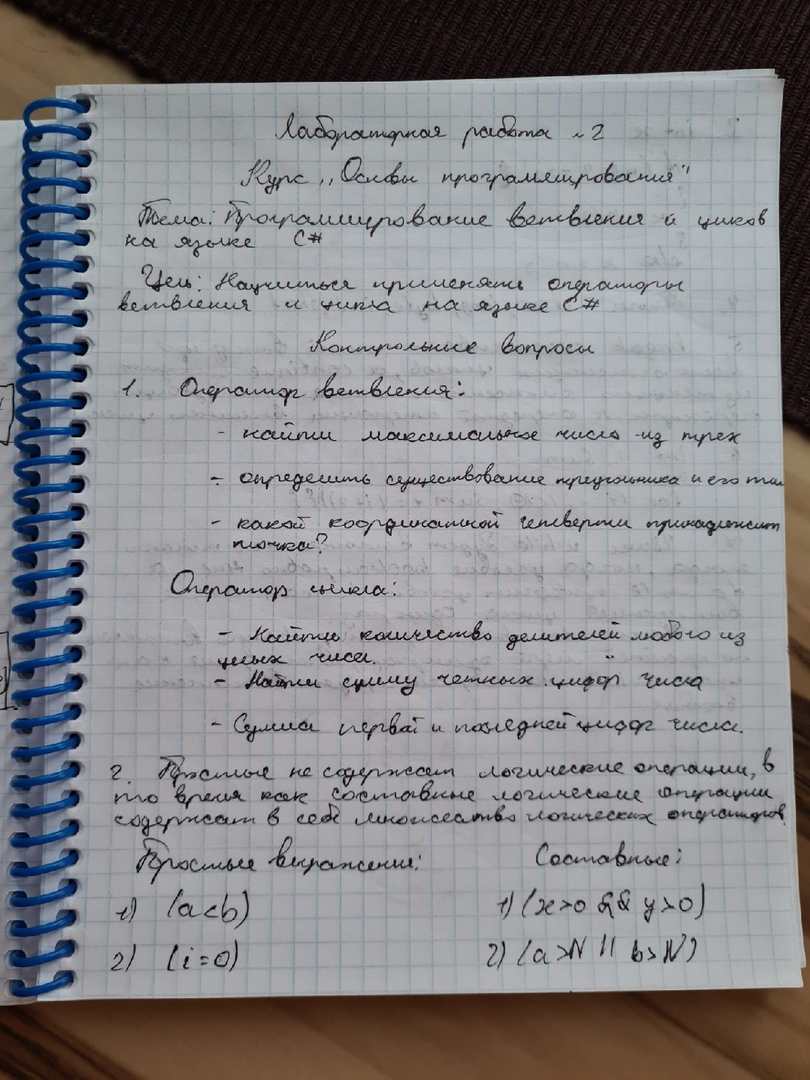 Лабораторная работа №2
Курс ,,Основы программирования"
Тема: Программирование ветвления и циклов
на языке C#
Цель: Научиться применять операторы
ветвления и цикла на языке C#
Контрольные вопросы
1. Оператор ветвления:
- найти максимальное число из трех
- определить существование треугольника и его тип
- какой координатной четверти принадлежит
точка?
Оператор цикла:
- Найти количество делителей любого из
целых чисел.
- Найти сумму четных цифр числа
- Сумма первой и последней цифр числа.
2. Простые не содержат логические операции, в
то время как составные логические операции
содержат в себе множество логических операторов.
Простые выражения:
Составные:
1) (a<b)
1) (x>0 && y>0)
2) (i=0)
2) (a>N || b>N)